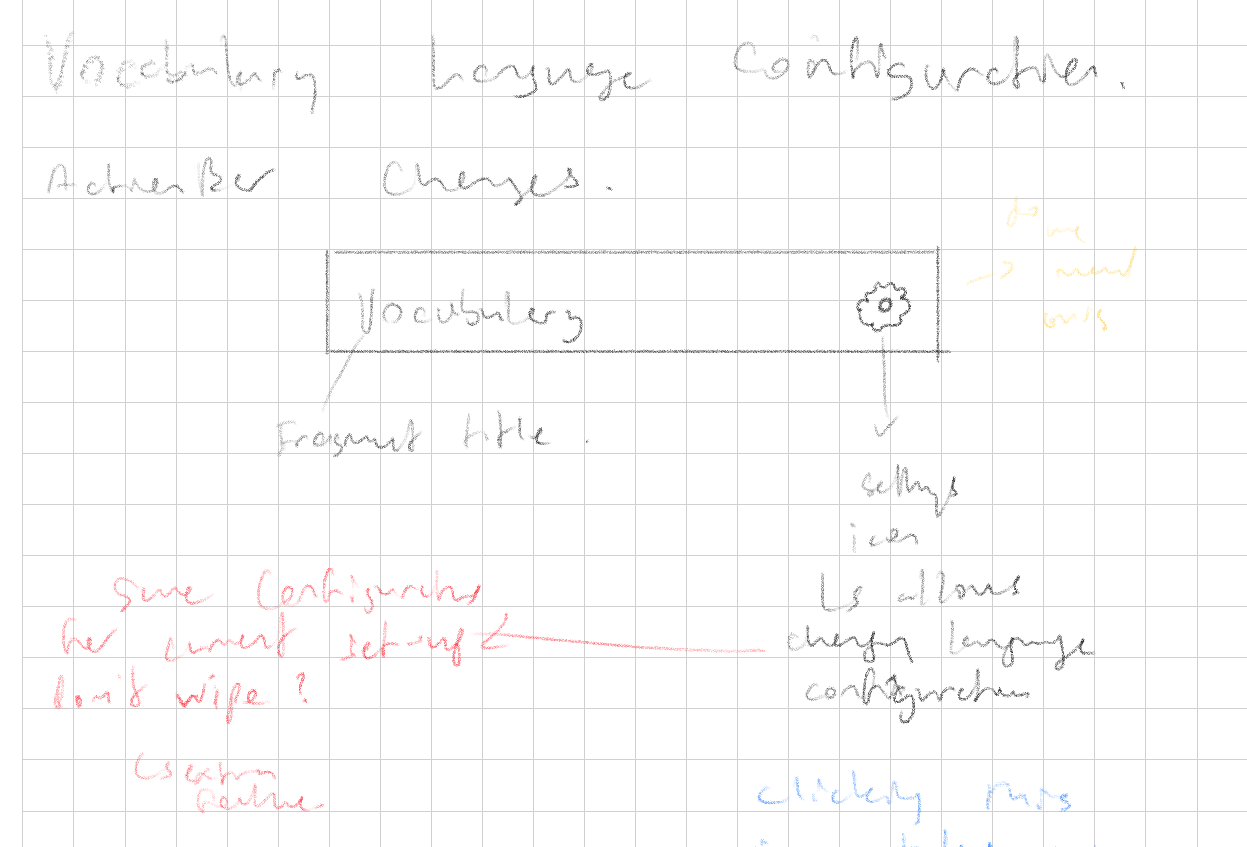 Vocabulary Language Configuration.
ActionBar Changes.
Vocabulary
Fragment title.
settings
icon
Ls allows
changing language
configuration
Save Configuration
for current set-up
Don't wipe?
Ls extra
feature
clicking this